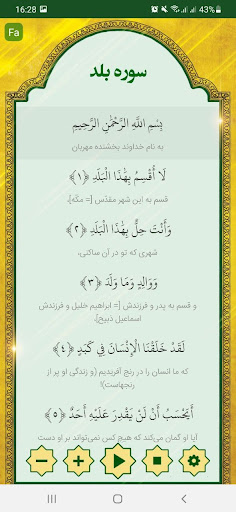 16:28
43%
Fa
سوره بلد
بِسْمِ اللَّهِ الرَّحْمَٰنِ الرَّحِيمِ
به نام خداوند بخشنده مهربان
لَا أُقْسِمُ بِهَٰذَا الْبَلَدِ ﴿١﴾
قسم به این شهر مقدّس [= مکّه].
وَأَنْتَ حِلٌّ بِهَٰذَا الْبَلَدِ ﴿٢﴾
شهری که تو در آن ساکنی،
وَوَالِدٍ وَمَا وَلَدَ ﴿٣﴾
و قسم به پدر و فرزندش [= ابراهیم خلیل و فرزندش
اسماعیل ذبیح].
لَقَدْ خَلَقْنَا الْإِنْسَانَ فِي كَبَدٍ ﴿٤﴾
که ما انسان را در رنج آفریدیم (و زندگی او پر از
رنجهاست)!
أَيَحْسَبُ أَنْ لَنْ يَقْدِرَ عَلَيْهِ أَحَدٌ ﴿٥﴾
آیا او گمان می‌کند که هیچ کس نمی‌تواند بر او دست